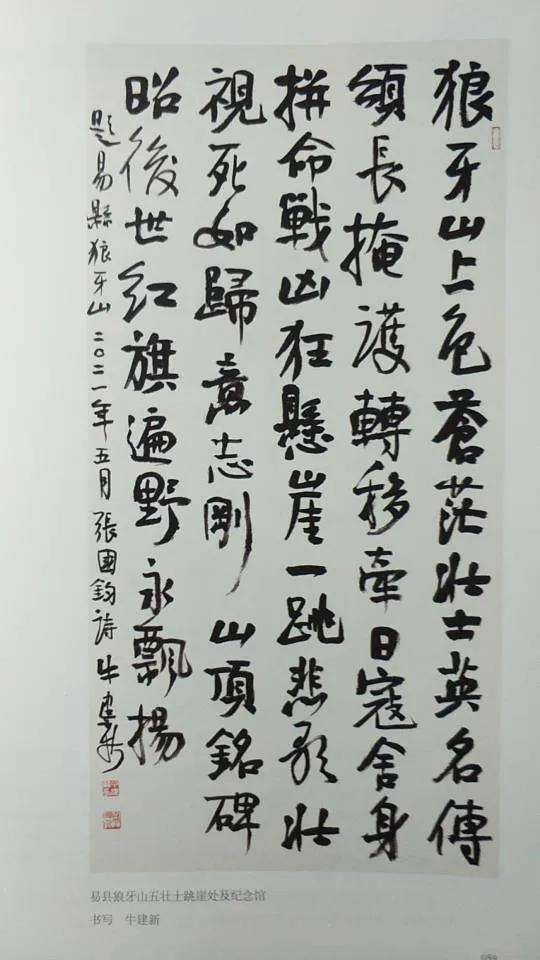 狼牙山上色蒼茫壮士英名傳
頌長掩護轉移牽日寇舍身
拼命戰凶狂懸崖一跳悲歌壮
視死如歸意志剛 山頂銘碑
昭後世红旗遍野永飄揚
题易縣狼牙山二〇二一年五月張國鈞詩 牛建新
易县狼牙山五壮士跳崖处及纪念馆
书写 牛建新